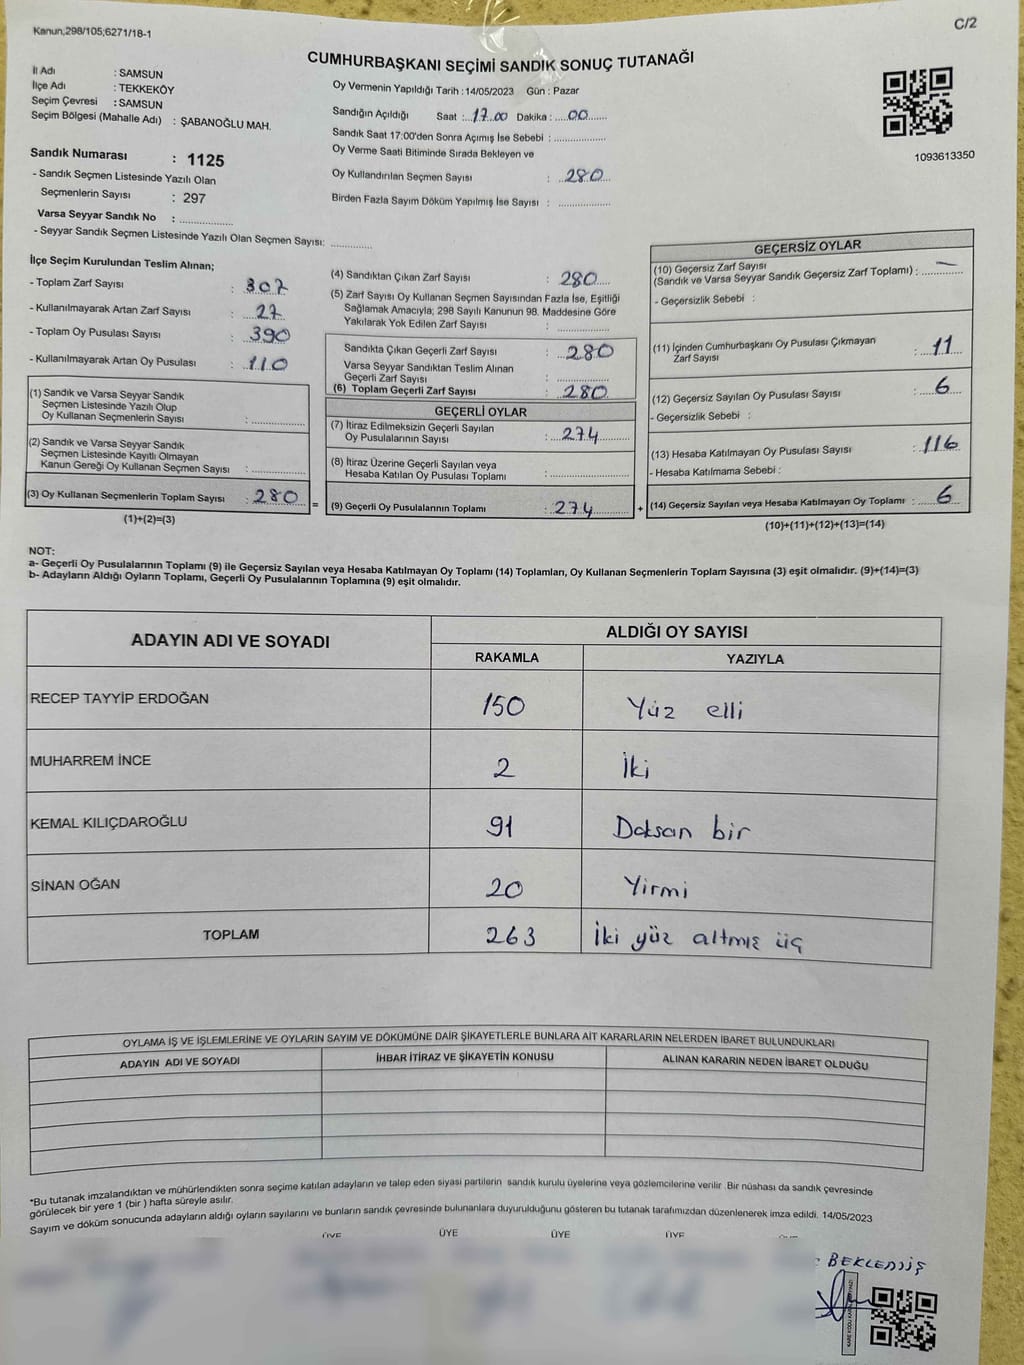 Kanun;298/105;6271/18-1
C/2
CUMHURBAŞKANI SEÇİMİ SANDIK SONUÇ TUTANAĞI
İl Adı : SAMSUN
İlçe Adı : TEKKEKÖY
Seçim Çevresi : SAMSUN
Seçim Bölgesi (Mahalle Adı) : ŞABANOĞLU MAH.
Sandık Numarası : 1125
- Sandık Seçmen Listesinde Yazılı Olan
Seçmenlerin Sayısı : 297
Varsa Seyyar Sandık No : ..............
- Seyyar Sandık Seçmen Listesinde Yazılı Olan Seçmen Sayısı: ............
Oy Vermenin Yapıldığı Tarih : 14/05/2023 Gün : Pazar
Sandığın Açıldığı Saat : 17.00 Dakika : 00
Sandık Saat 17:00'den Sonra Açımış İse Sebebi : ................
Oy Verme Saati Bitiminde Sırada Bekleyen ve
Oy Kullandırılan Seçmen Sayısı : 280
Birden Fazla Sayım Döküm Yapılmış İse Sayısı : ................
1093613350
İlçe Seçim Kurulundan Teslim Alınan;
- Toplam Zarf Sayısı : 307
- Kullanılmayarak Artan Zarf Sayısı : 27
- Toplam Oy Pusulası Sayısı : 390
- Kullanılmayarak Artan Oy Pusulası : 110
(1) Sandık ve Varsa Seyyar Sandık
Seçmen Listesinde Yazılı Olup
Oy Kullanan Seçmenlerin Sayısı : ................
(2) Sandık ve Varsa Seyyar Sandık
Seçmen Listesinde Kayıtlı Olmayan
Kanun Gereği Oy Kullanan Seçmen Sayısı : ................
(3) Oy Kullanan Seçmenlerin Toplam Sayısı : 280 =
(1)+(2)=(3)
(4) Sandıktan Çıkan Zarf Sayısı : 280
(5) Zarf Sayısı Oy Kullanan Seçmen Sayısından Fazla İse, Eşitliği
Sağlamak Amacıyla; 298 Sayılı Kanunun 98. Maddesine Göre
Yakılarak Yok Edilen Zarf Sayısı : ................
Sandıkta Çıkan Geçerli Zarf Sayısı : 280
Varsa Seyyar Sandıktan Teslim Alınan
Geçerli Zarf Sayısı : ................
(6) Toplam Geçerli Zarf Sayısı : 280
GEÇERLİ OYLAR
(7) İtiraz Edilmeksizin Geçerli Sayılan
Oy Pusulalarının Sayısı : 274
(8) İtiraz Üzerine Geçerli Sayılan veya
Hesaba Katılan Oy Pusulası Toplamı : ................
(9) Geçerli Oy Pusulalarının Toplamı : 274 +
GEÇERSİZ OYLAR
(10) Geçersiz Zarf Sayısı
(Sandık ve Varsa Seyyar Sandık Geçersiz Zarf Toplamı) : —
- Geçersizlik Sebebi :
(11) İçinden Cumhurbaşkanı Oy Pusulası Çıkmayan
Zarf Sayısı : 11
(12) Geçersiz Sayılan Oy Pusulası Sayısı : 6
- Geçersizlik Sebebi :
(13) Hesaba Katılmayan Oy Pusulası Sayısı : 116
- Hesaba Katılmama Sebebi :
(14) Geçersiz Sayılan veya Hesaba Katılmayan Oy Toplamı : 6
(10)+(11)+(12)+(13)=(14)
NOT:
a- Geçerli Oy Pusulalarının Toplamı (9) ile Geçersiz Sayılan veya Hesaba Katılmayan Oy Toplamı (14) Toplamları, Oy Kullanan Seçmenlerin Toplam Sayısına (3) eşit olmalıdır. (9)+(14)=(3)
b- Adayların Aldığı Oyların Toplamı, Geçerli Oy Pusulalarının Toplamına (9) eşit olmalıdır.
ADAYIN ADI VE SOYADI
ALDIĞI OY SAYISI
RAKAMLA YAZIYLA
RECEP TAYYİP ERDOĞAN 150 Yüz elli
MUHARREM İNCE 2 İki
KEMAL KILIÇDAROĞLU 91 Doksan bir
SİNAN OĞAN 20 Yirmi
TOPLAM 263 İki yüz altmış üç
OYLAMA İŞ VE İŞLEMLERİNE VE OYLARIN SAYIM VE DÖKÜMÜNE DAİR ŞİKAYETLERLE BUNLARA AİT KARARLARIN NELERDEN İBARET BULUNDUKLARI
ADAYIN ADI VE SOYADI İHBAR İTİRAZ VE ŞİKAYETİN KONUSU ALINAN KARARIN NEDEN İBARET OLDUĞU
*Bu tutanak imzalandıktan ve mühürlendikten sonra seçime katılan adayların ve talep eden siyasi partilerin sandık kurulu üyelerine veya gözlemcilerine verilir .Bir nüshası da sandık çevresinde
görülecek bir yere 1 (bir ) hafta süreyle asılır.
Sayım ve döküm sonucunda adayların aldığı oyların sayılarını ve bunların sandık çevresinde bulunanlara duyurulduğunu gösteren bu tutanak tarafımızdan düzenlenerek imza edildi. 14/05/2023
ÜYE ÜYE ÜYE ÜYE
: BEKLEMİŞ